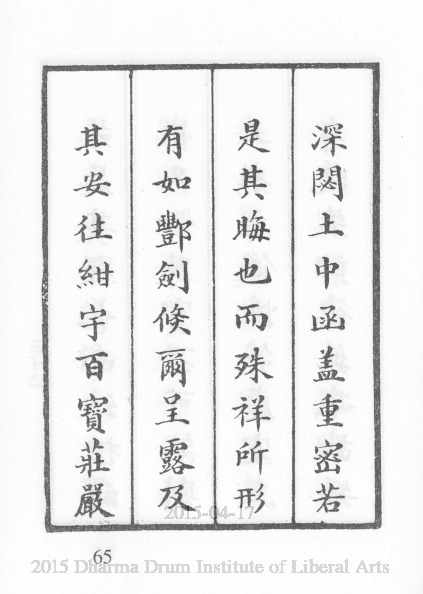 深閟土中函盖重密若
是其晦也而殊祥所形
有如酆劍倐爾呈露及
其安往紺宇百寶莊嚴
2015-04-17
65
2015 Dharma Drum Institute of Liberal Arts